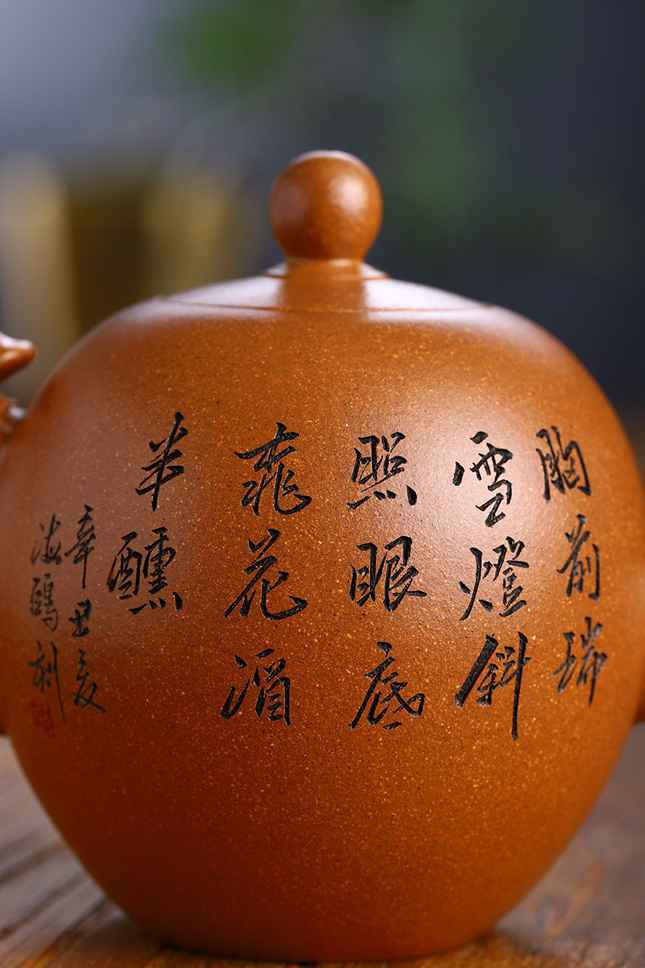 胸前瑞
雪燈斜
照眼底
桃花酒
半醺
辛丑夏
海鷗刻